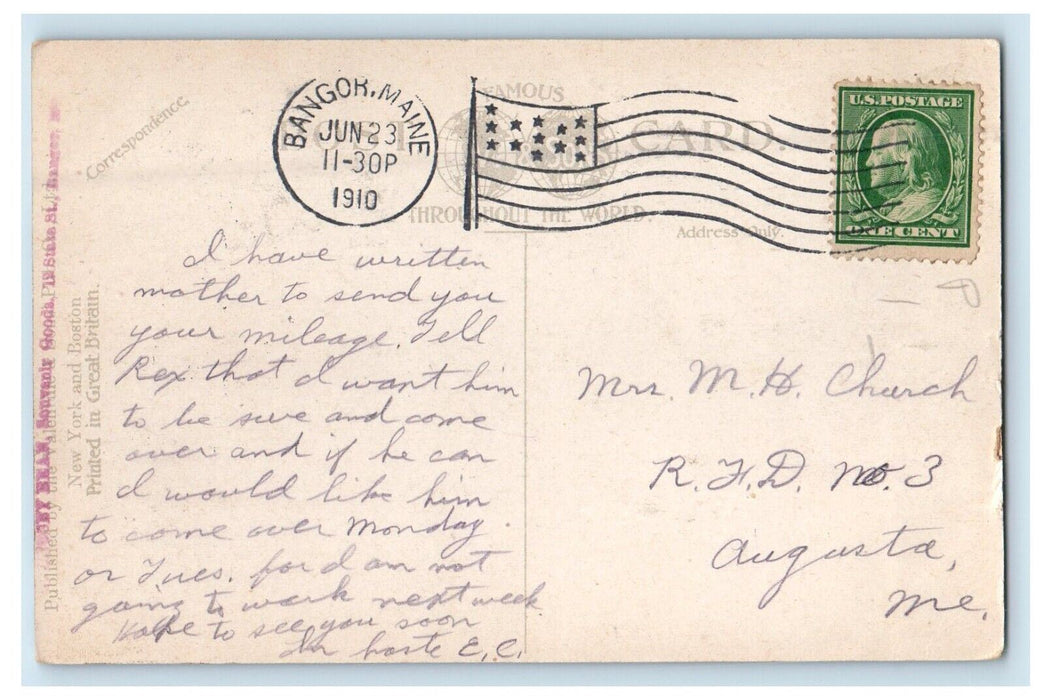 Correspondence.
BANGOR, MAINE
JUN 23
11-30P
1910
FAMOUS
POST CARD.
THROUGHOUT THE WORLD.
Address Only.
U.S. POSTAGE
ONE CENT
I have written
mother to send you
your mileage. Tell
Rex that I want him
to be sure and come
over and if he can
I would like him
to come over Monday
or Tues. for I am not
going to work next week
Hope to see you soon
In haste E.C.
Mrs. M. H. Church
R.F.D. No. 3
Augusta,
Me.
Published by the Valentine &
New York and Boston
Printed in Great Britain.
Souvenir Goods, 19 State St., Bangor,